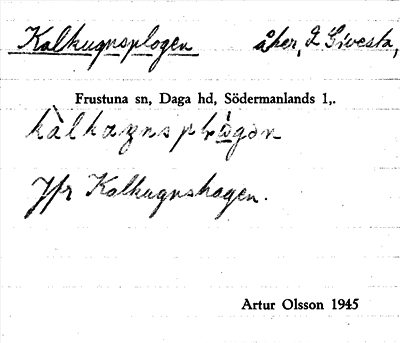 Kalkugnsplogen åker, L Sivesta,
Frustuna sn, Daga hd, Södermanlands l,.
Jfr Kalkugnshagen.
Artur Olsson 1945